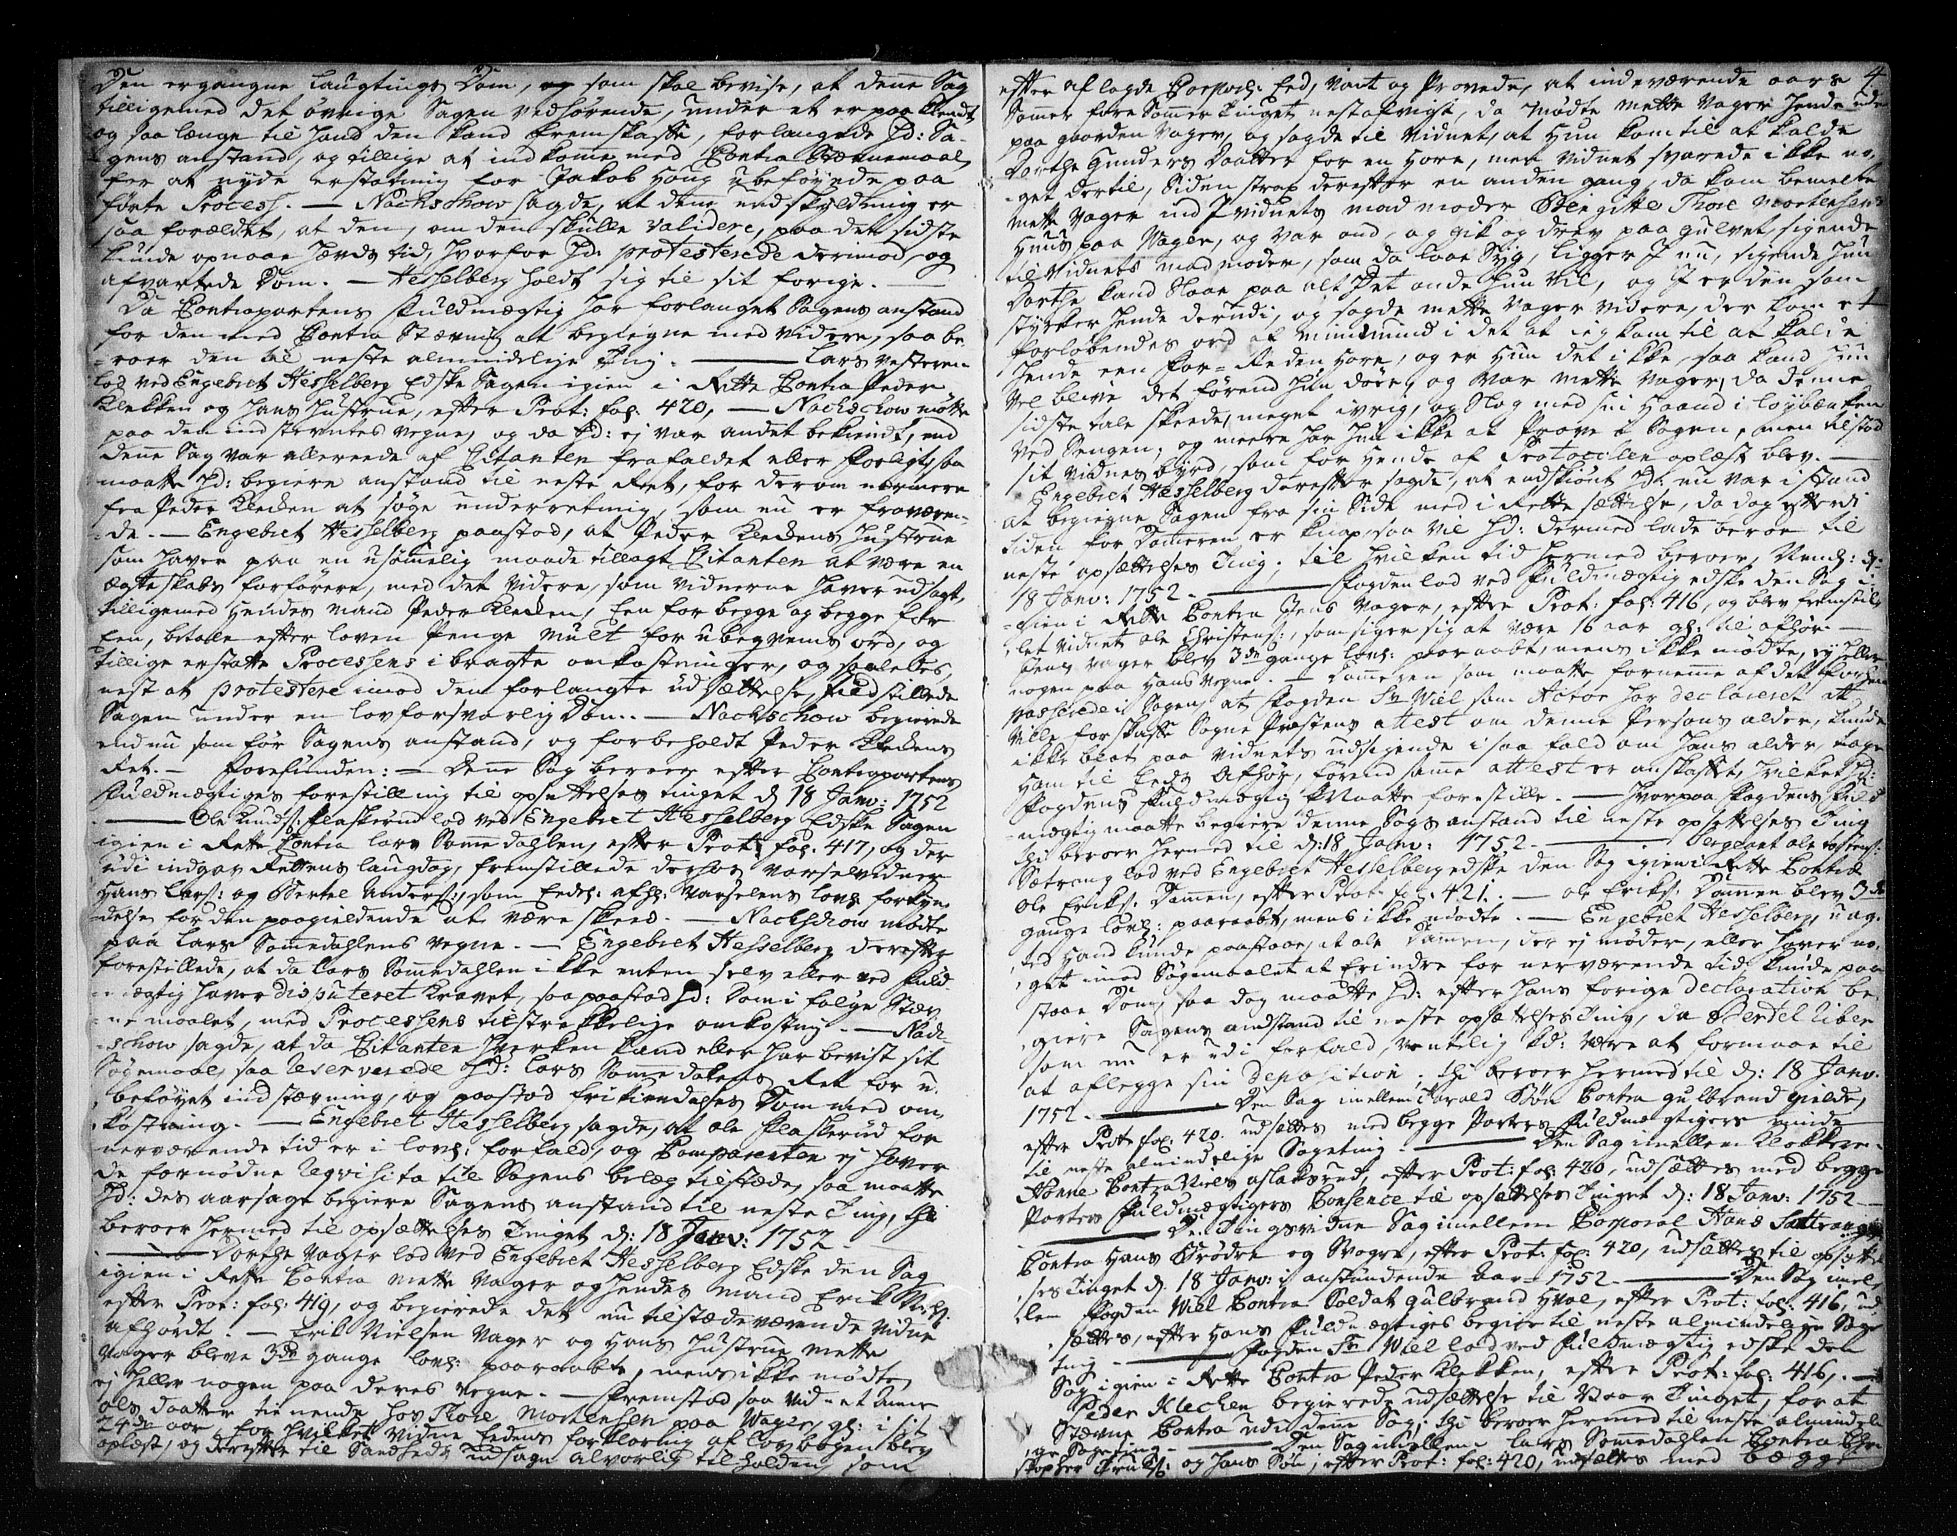 Den ergangne Laugtings Dom, og som skal bevise, at denne Sag
tilligemed det øvrige Sagen vedhørende, under et er paaklendt,
og saa længe til hand den kand fremskaffe, forlangede Hd: Sa-
gens anstand, og tillige at indkomme med Contra Stævnemaal,
for at nyde erstatning for Jakob Houg ubeføyede paa
førte Process. — Nachschow sagde, at denne undskyldning er
saa forældet, at den, om den skulle validere, paa det sidste
kunde opnaae hævds tid, hvorfor Hd: protesterede derimod, og
afvartede Dom. — Hesselberg holdt sig til sit forige. —
Da Contrapartens fuldmægtig har forlanget Sagens anstand
for den med Contra Stævning at begiegne med videre, saa be-
roer den til neste almindelige Ting. — Lars Vesteren
lod ved Engebret Hesselberg Edske Sagen igien i Rette Contra Peder
Klekken og hans Hustrue, efter Prot: fol: 420, — Nachschow møtte
paa den indstevntes vegne, og da Hd: ej var andet bekiendt, end
denne Sag var allereede af Citanten frafaldet eller forligt, saa
maatte Hd: begiere anstand til neste Ret, for derom nærmere
fra Peder Klecken at søge underretning, som nu er fraværen-
de. — Engebret Hesselberg paastod, at Peder Kleckens Hustrue
som haver paa en usømmelig maade tillagt Citanten at være en
ægteskabs forfører, med det videre, som vidnerne haver udsagt,
tilligemed hendes mand Peder Klecken, Een for begge og begge for
een, betale efter loven Penge mult for ubeqvems ord, og
tillige erstatte Processens ibragte omkostninger, og saaledes,
nest at protestere imod den forlangte udsættelse, indstillede
Sagen under en lovforsvarlig Dom. — Nachschow begierede
endnu som før Sagens anstand, og forbeholdt Peder Kleckens
Ret. — Forefunden: — Denne Sag beroer efter Contrapartens
fuldmægtiges forestilling til opsettelses tinget d: 18 Janv: 1752
— Ole Knuds: Flaskerud lod ved Engebret Hesselberg Edske Sagen
igien i Rette Contra Lars Sommedahlen, efter Prot: fol: 417, og der
udi indgav Rettens laugdag, fremstillede derhos varselvidner
Hans Lars: og Bertel Anders:, som Eedl: afhl: Varselens lovl: forkyn-
delse for den paagieldende at være skeed. — Nachschow mødte
paa Lars Sommedahlens vegne. — Engebret Hesselberg derefter
forestillede, at da Lars Sommedahlen ikke enten selv eller ved fuld-
mægtig haver disputeret kravet, saa paastod Hd: Dom i følge Stæv-
nemaalet, med Processens tilstrekkelige omkostning. — Nach-
schow sagde, at da Citanten hverken kand eller har bevist sit
Søgemaal, saa reserverede Hd: Lars Sommedalens Ret for u-
beføyet indstævning, og paastod frikiendelses Dom med om-
kostning. — Engebret Hesselberg sagde, at Ole Flaskerud for
nerværende tid er i lovl: forfald, og Comparenten ej haver
de fornødne Reqvisita til Sagens belæg tilstæde, saa maatte
Hd: des aarsage begiere Sagens anstand til neste Ting, thi
beroer hermed til opsættelses Tinget d: 18 Janv: 1752
— Dorthe Vager lod ved Engebret Hesselberg Edske den Sag
igien i Rette Contra Mette Vager og hendes mand Erik Niels:
efter Prot: fol: 419, og begierede det nu tilstædeværende vidne
afhørdt. — Erik Nielsen Vager og Hans Hustrue Mette
Vager bleve 3de gange lovl: paaraabt, mens ikke mødte,
ej heller nogen paa deres vegne. — Fremstod saa vidnet Anne
Ols daatter tienende hos Thore Mortensen paa Vager, gl: i sit
24de aar, for hvilket vidne Eedens forklaring af lovbogen blev
oplæst, og derefter til Sandheds udsagn alvorlig tilholden, som
efter aflagde Corporl: Eed, vant og Provede, at indeværende aars 4
Sommer føre Sommertinget nestafvigt, da mødte Mette Vager hende ude
paa gaarden Vager, og sagde til vidnet, at hun kom til at kalde
Dorthe Gunders daatter for en Hore, men vidnet svarede ikke no-
get dertil, Siden strax derefter en anden gang, da kom bemelte
Mette Vager ind i vidnets madmoder Bergitte Thore Mortensens
Huus paa Vager, og var ond, og gik og drev paa gulvet, sigende
til Vidnets madmoder, som da laae Syg, ligger I nu, sigende hun
Dorthe kand staae paa alt det onde hun vil, og I er den som
styrker hende derudi, og sagde Mette Vager videre, der kom et
forløbendes ord af min mund i det at ieg kom til at kalde
hende een for-Reden Hore, og er hun det ikke, saa kand hun
vel blive det førend hun døer, og var Mette Vager, da denne
sidste tale skeede, meget ivrig, og slog med sin Haand i løybænken
ved Sengen; og meere har hun ikke at Prove i Sagen, men tilstod
sit vidnesbyrd, som for hende af Protocollen oplæst blev. —
Engebret Hesselberg derefter sagde, at endskiønt Hd: nu var i stand
at begiegne Sagen fra sin Side med i Rette sættelse, da dog efterdi
tiden for Dommeren er knap, saa vil Hd: dermed lade beroe til
neste opsættelses Ting; til hvilken tid hermed beroer, Nemb: d:
18 Janv: 1752. — Fogden lod ved fuldmægtig edske den Sag i-
gien i Rette Contra Jens Vager, efter Prot: fol: 416, og blev fremstil-
let vidnet Ole Christens:, som siger sig at være 16 aar gl: til afhør. —
Jens Vager blev 3de gange lovl: paaraabt, mens ikke mødte, ej heller
nogen paa Hans Vegne. — Dommeren som maatte fornemme af det forhen
passerede i Sagen, at Fogden Sr Wiel som Actor har declareret at
ville forskaffe Sogne Præstens attest om denne Persons alder, kunde
ikke blot paa vidnets udsigende i saa fald om hans alder, tage
ham til Eeds Afhør, førend samme attest er anskaffet, hvilket Hd:
Fogdens fuldmægtig maatte forestille. — hvorpaa Fogdens fuld-
mægtig maatte begiere denne Sags anstand til neste opsettelses Ting
thi beroer hermed til d: 18 Janv: 1752 — Sergeant Ole
Sætrang lod ved Engebret Hesselberg edske den Sag igien i Rette Contra
Ole Eriks: Dammen, efter Prot: fol: 421. — Ole Eriks: Dammen blev 3de
gange lovl: paaraabt, mens ikke mødte. — Engebret Hesselberg, uag-
ted Hand kunde paastaae, at Ole Dammen, der ej møder, eller haver no-
get imod Søgemaalet at Erindre for nerværende tid, kunde paa-
staae Dom, saa dog maatte Hd: efter hans forige declaration be-
giere Sagens andstand til neste opsættelses Ting, da Berdel Ruben
som nu er udi forfald, ventelig kd: være at formaae til
at aflegge sin deposition; thi beroer hermed til d: 18 Janv:
1752. — Den Sag imellem Harald Bøn Contra Gulbrand Gielde,
efter Prot: fol: 420. udsættes med begge Parters fuldmægtigers minde
til neste almindelige Sageting. — Den Sag imellem Klokkeren
Honne Contra Niels Aslaksrud, efter Prot: fol: 420, udsættes med begge
Parters fuldmægtigers Consence til opsættelses Tinget d: 18 Janv: 1752
— De Tingsvidne Sag imellem Corporal Hans Sættrang
Contra Hans Brødre og Svogre, efter Prot: fol: 420, udsættes til opsættel-
ses Tinget d. 18 Janv: i anstundende Aar 1752 — Den Sag imel-
lem Fogden Wiel Contra Soldat Gulbrand Hval, efter Prot: fol: 416, ud-
sættes, efter Hans fuldmægtiges begier til neste almindelige Sage
ting — Fogden Sr Wiel lod ved fuldmægtig edske den
Sag igien i Rette Contra Peder Klekken, efter Prot: fol: 416, —
Peder Klecken begierede udsættelse til Vaar Tinget, for at
Stævne Contra udi denne Sag; thi beroer hermed til neste almindeli-
ge Sageting. — Den Sag imellem Lars Sommedahlen Contra Chri-
stopher Truls: og Hans Søn, efter Prot: fol: 420, udsættes med begge